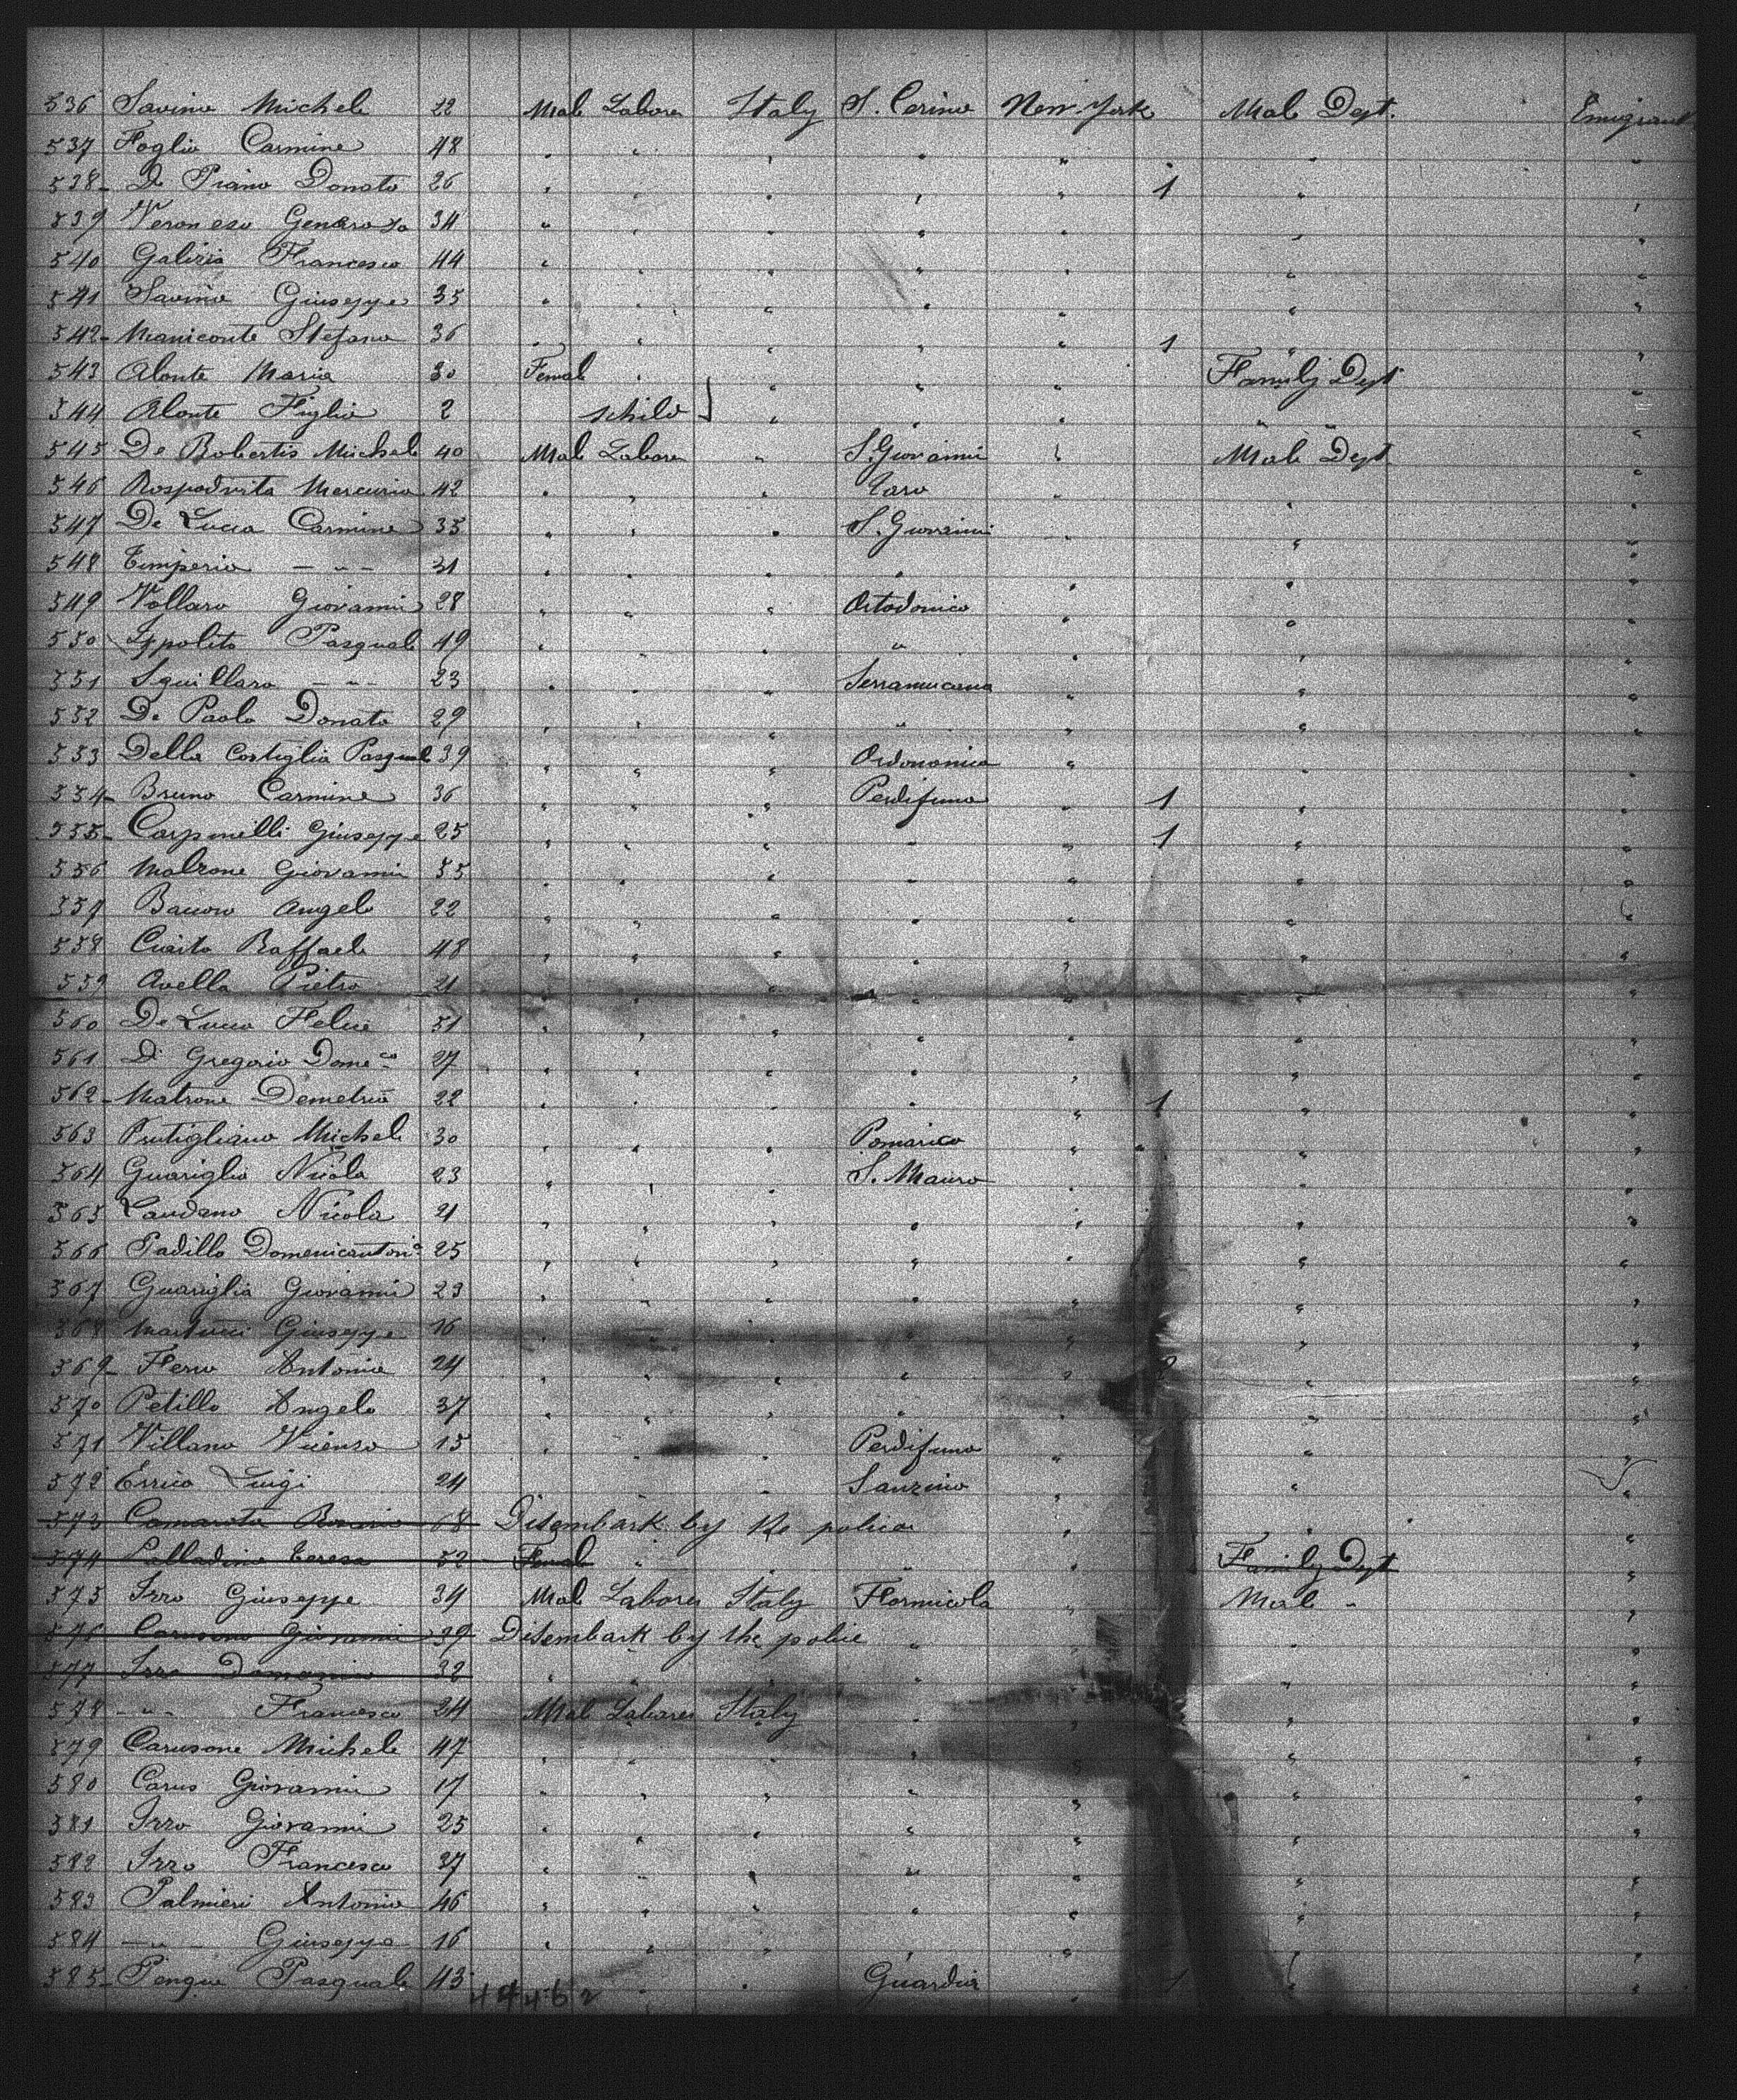 536 Savino Michele 22 Male Laborer Italy S. Cerino New-York Male Dept. Emigrant
537 Foglia Carmine 48 " " " " " " "
538 - De Piano Donato 26 " " " " " 1 " "
539 Veronese Generoso 34 " " " " " " "
540 Francesco 44 " " " " " " "
541 Savino Giuseppe 35 " " " " " " "
542 - Maniconte Stefano 36 " " " " " 1 " "
543 Alonte Maria 30 Female " " " " Family Dept "
544 Alonte Figlia 2 schild " " " " "
545 De Robertis Michele 40 Male Laborer " S. Giovanni " Male Dept "
546 Mercurio 42 " " " " " "
547 De Lucca Carmine 35 " " " S. Giovanni " " "
548 Timperio - " - 31 " " " " " " "
549 Vollaro Giovanni 28 " " " Ortodonico " " "
550 Ippolito Pasquale 19 " " " " " " "
551 Squillaro - " - 23 " " " Serramucana " " "
552 De Paolo Donato 29 " " " " " " "
553 Della Costiglia Pasquale 39 " " " " " "
554 - Bruno Carmine 36 " " " Perdifumo " 1 " "
555 - Carpinelli Giuseppe 25 " " " " " 1 " "
556 Matrone Giovanni 35 " " " " " " "
557 Angelo 22 " " " " " " "
558 Raffaele 48 " " " " " " "
559 Avella Pietro 21 " " " " " " "
560 De Lucca Felice 31 " " " " " " "
561 Di Gregorio Dome.co 27 " " " " " " "
562 - Matrone Demetrio 22 " " " " " 1 " "
563 Prutigliano Michele 30 " " " Pomarico " " "
564 Guariglia Nicola 23 " " " S. Mauro " " "
565 Laudano Nicola 21 " " " " " " "
566 Padillo Domenicantoni.o 25 " " " " " " "
567 Guariglia Giovanni 23 " " " " " " "
568 Martucci Giuseppe 16 " " " " " " "
569 - Antonio 24 " " " " " " "
570 Petillo Angelo 37 " " " " " " "
571 Villano Vicenzo 15 " " " Perdifumo " " "
572 Errico Luigi 24 " " " " "
573 Camarota 68 Disembark by the police " " "
574 Palladino Teresa 52 Female " " " " Family Dept "
575 Irro Giuseppe 34 Male Laborer Italy Formicola " Male " "
576 Carusone Giovanni 39 Disembark by the police " " " "
577 Irro 32 " " " " " " "
578 - " - Francesco 24 Male Laborer Italy " " " "
579 Carusone Michele 47 " " " " " " "
580 Carus Giovanni 17 " " " " " " "
581 Irro Giovanni 25 " " " " " " "
582 Irro Francesco 37 " " " " " " "
583 Palmieri Antonio 46 " " " " " " "
584 - " - Giuseppe 16 " " " " " " "
585 - Pengue Pasquale 43 " " " Guardia " 1 " "